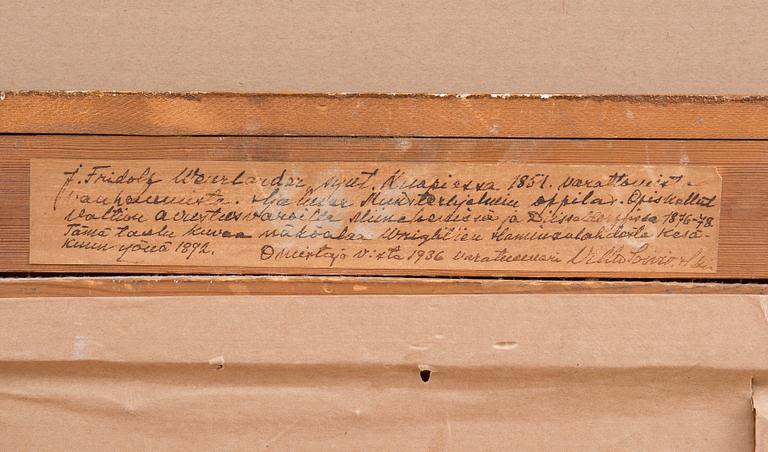 J. Fridolf Weurlander synt. Kuopiossa 1851. varattomista
vanhemmista. Hjalmar Munsterhjelmin oppilas. Opiskellut
valtion avustusvaroilla Münchenissä ja Düsseldorfissa 1876-78.
Tämä taulu kuvaa näköalaa Wrightien Haminalahdella kesä-
kuun yönä 1892. Omistaja v:sta 1936 varatuomari